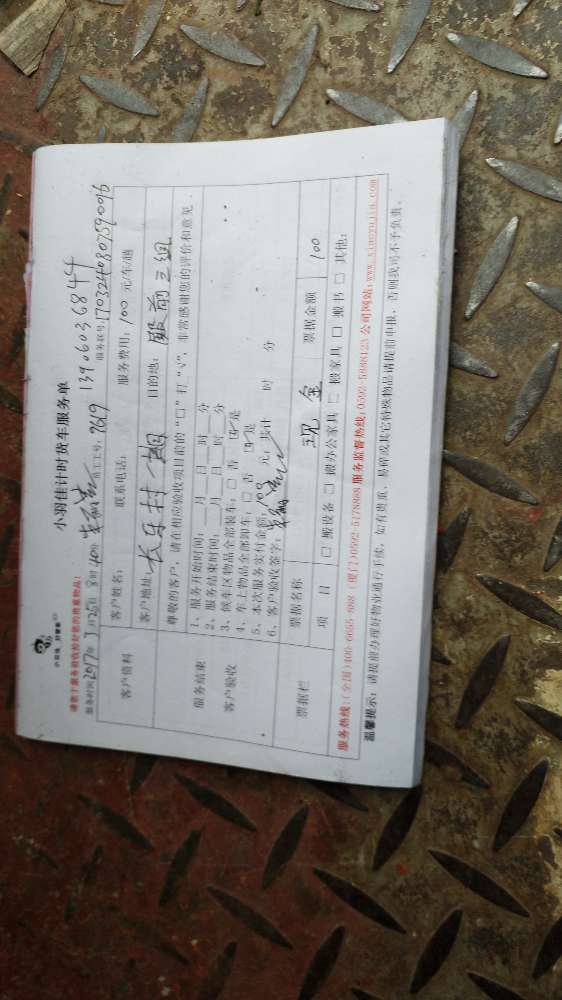 小羽佳计时货车服务单
请您于服务验收检好您的贵重物品!
服务时间2017年3月25日8时40分 员工工号:7619 13906036844
服务联号:170324080759096
客户资料 客户姓名: 联系电话: 服务费用:100元/车/趟
客户地址:长乐村 目的地:殿前三组
服务结束
客户验收
尊敬的客户,请在相应验收项目前的“□”打“√”,非常感谢您的评价和意见
1、服务开始时间:___月___日___时___分
2、服务结束时间:___月___日___时___分
3、候车区物品全部装车:□否 □是
4、车上物品全部卸车:□否 □是
5、本次服务实付金额:100元;共计 时 分
6、客户验收签字:
票据栏 票据名称 现金 票据金额 100
项 目 □搬设备 □搬办公家具 □搬家具 □搬书 □其他:
服务热线:(全国)400-6655-888 (厦门)0592-5178868,服务监督热线:0592-5888123 公司网站:www.xiaoyujia.com
温馨提示:请提前办理好物业通行手续,如有贵重、易碎或其它特殊物品请提前申报,否则我司不予负责。